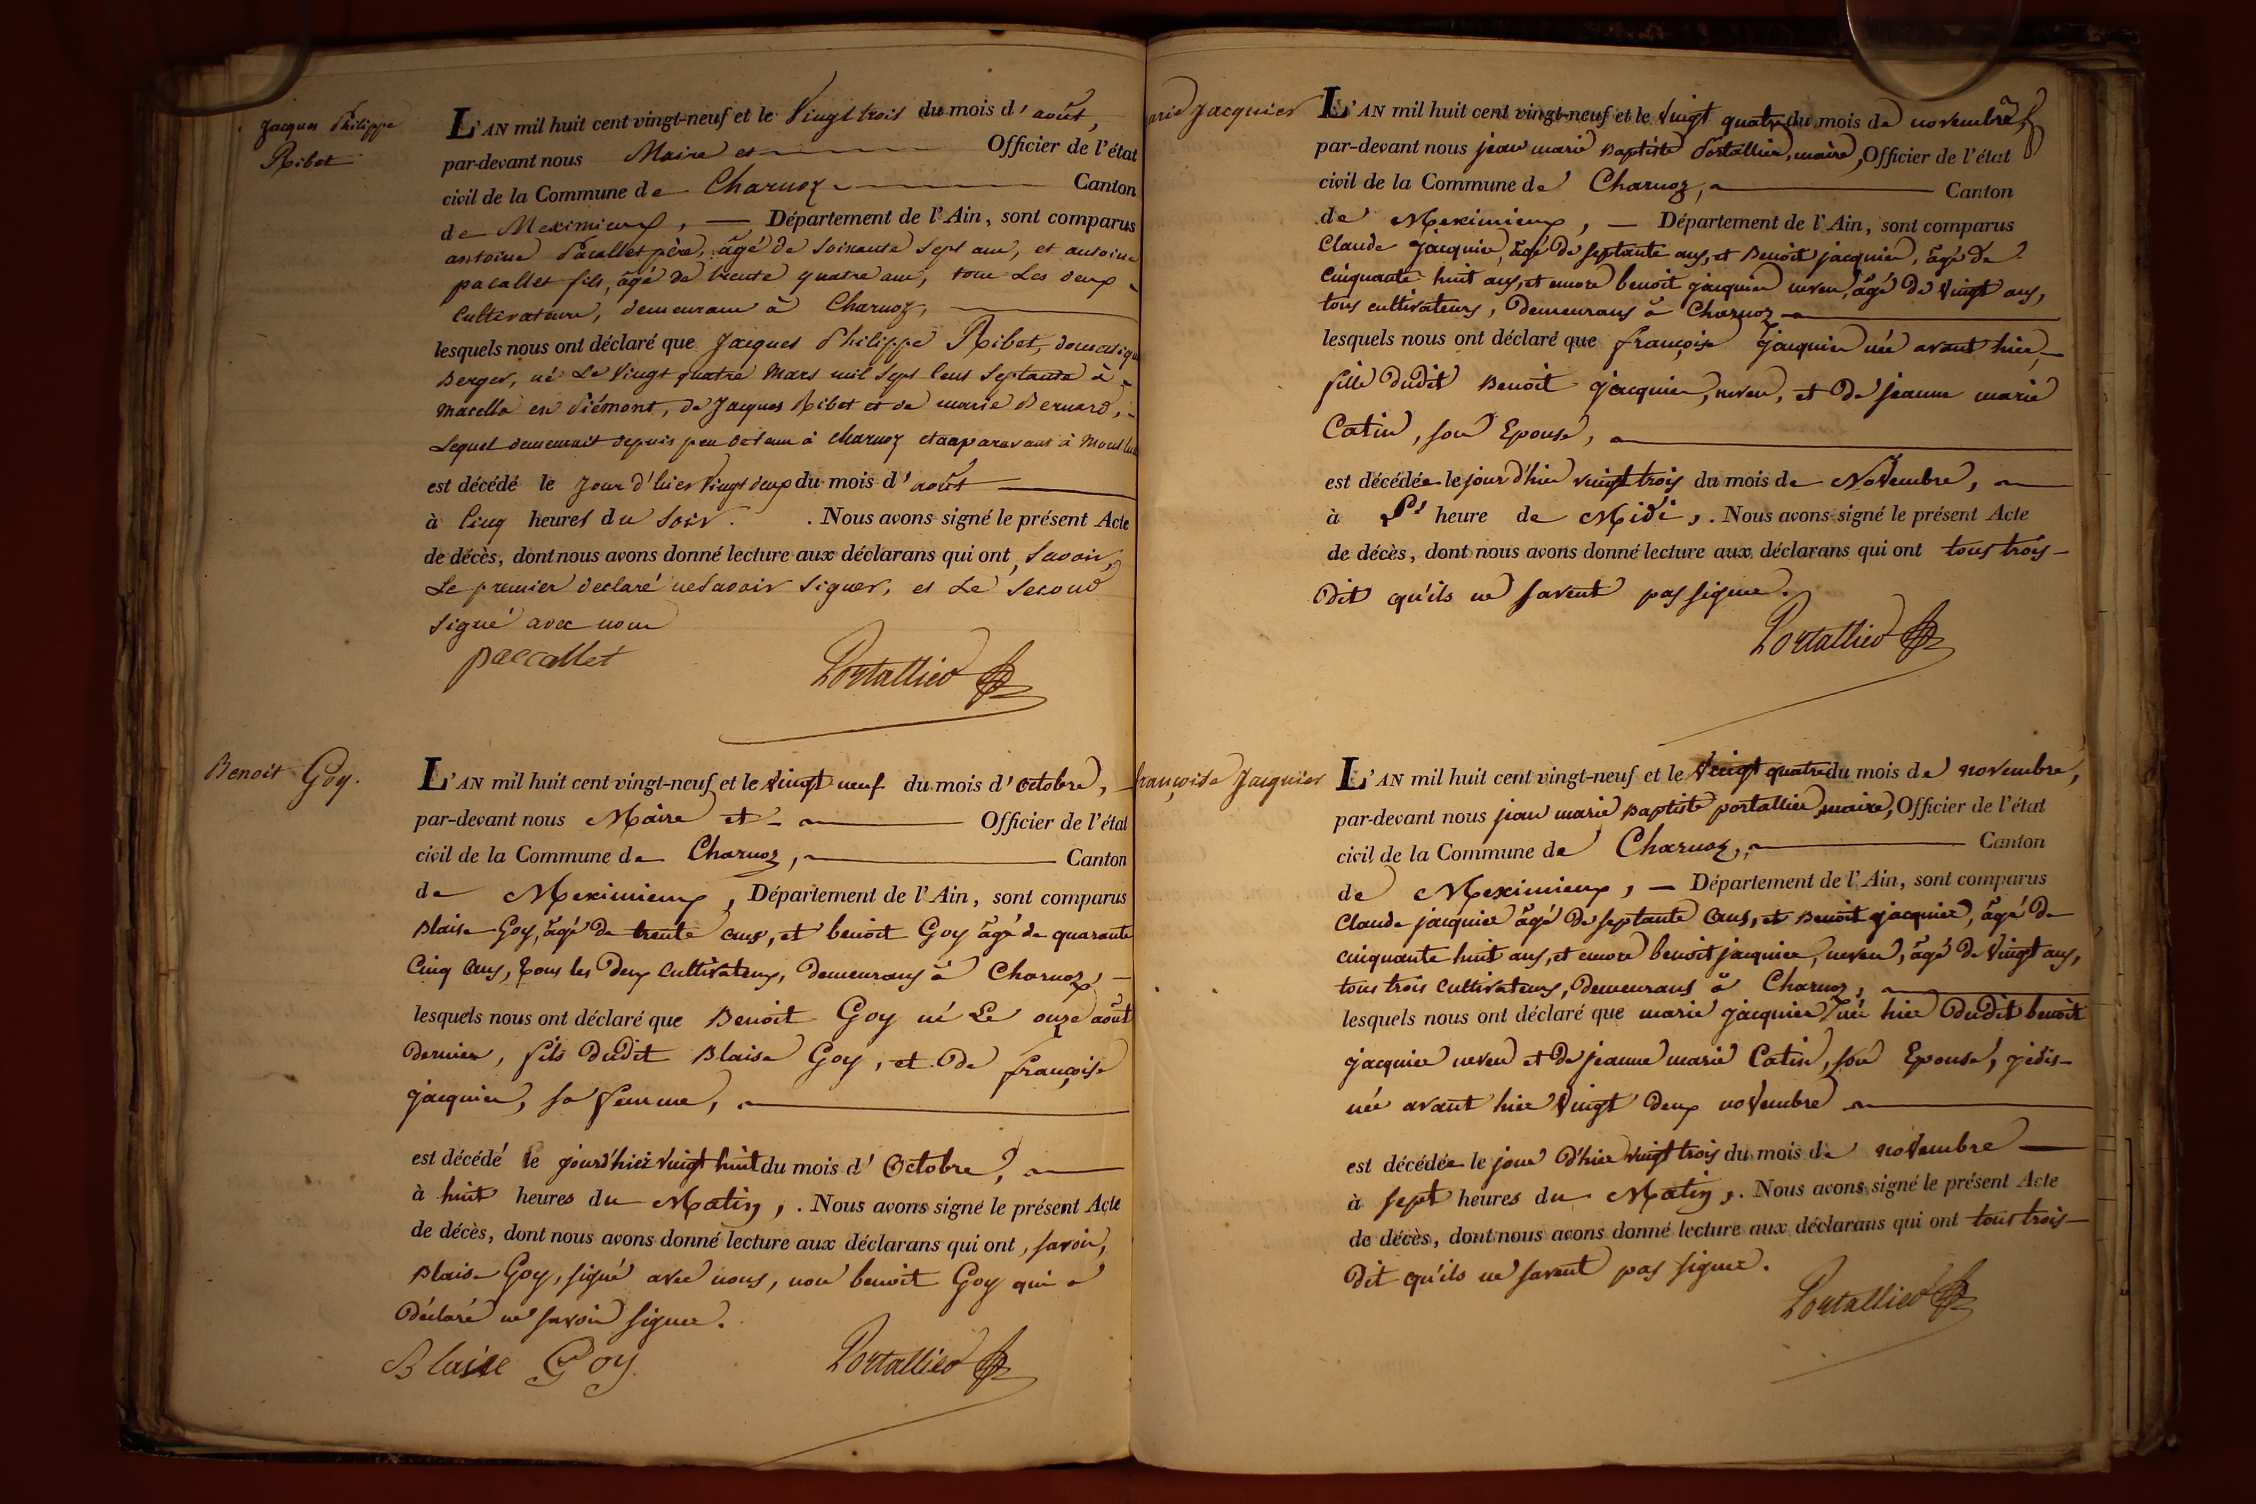 Jacques Philippe
Ribet
L'AN mil huit cent vingt-neuf et le Vingt trois du mois d'août,
par-devant nous Maire et Officier de l'état
civil de la Commune de Charnoz Canton
de Meximieux, Département de l'Ain, sont comparus
antoine Pacallet père, âgé de soixante sept ans, et antoine
pacallet fils, âgé de trente quatre ans, tous les deux
Cultivateurs, demeurans à Charnoz,
lesquels nous ont déclaré que Jacques Philippe Ribet, domestique
Berger, né le Vingt quatre Mars mil sept cent septante à
Macello en Piémont, de Jacques Ribet et de marie Bernard,
lequel demeurait depuis peu de tems à charnoz et auparavant à
est décédé le Jour d'hier Vingt deux du mois d'août
à Cinq heures du Soir. Nous avons signé le présent Acte
de décès, dont nous avons donné lecture aux déclarans qui ont, Savoir,
Le premier declaré ne Savoir Signer, et Le Second
Signé avec nous
paccallet Portallier
Benoit Goy.
L'AN mil huit cent vingt-neuf et le Vingt neuf du mois d'octobre,
par-devant nous Maire et Officier de l'état
civil de la Commune de Charnoz, Canton
de Meximieux, Département de l'Ain, sont comparus
Blaise Goy, âgé de trente ans, et benoit Goy âgé de quarante
Cinq ans, tous les Deux Cultivateurs, demeurans à Charnoz,
lesquels nous ont déclaré que Benoit Goy né Le onze août
Dernier, fils Dudit Blaise Goy, et De françoise
jacquier, sa femme,
est décédé le jourd'hier Vingt huit du mois d'Octobre,
à huit heures du Matin, . Nous avons signé le présent Acte
de décès, dont nous avons donné lecture aux déclarans qui ont, savoir,
Blaise Goy, signé avec nous, non benoit Goy qui a
Déclaré ne savoir signer.
Blaise Goy Portallier
arie Jacquier
L'AN mil huit cent vingt-neuf et le Vingt quatre du mois de novembre,
par-devant nous jean marie Baptiste Portallier, maire, Officier de l'état
civil de la Commune de Charnoz, Canton
de Meximieux, Département de l'Ain, sont comparus
Claude jacquier, âgé De septante ans, et Benoit jacquier, âgé de
Cinquante huit ans, et encore benoit jacquier neveu, âgé De Vingt ans,
tous cultivateurs, Demeurans à Charnoz
lesquels nous ont déclaré que françoise Jacquier née avant hier,
fille Dudit Benoit jacquier, neveu, et De jeanne marie
Catin, son Epouse,
est décédée le jour d'hier vingt trois du mois de Novembre,
à heure de Midi, . Nous avons signé le présent Acte
de décès, dont nous avons donné lecture aux déclarans qui ont tous trois
Dit qu'ils ne savent pas signer.
Portallier
rançoise Jacquier
L'AN mil huit cent vingt-neuf et le Vingt quatre du mois de novembre,
par-devant nous jean marie Baptiste portallier, maire, Officier de l'état
civil de la Commune de Charnoz, Canton
de Meximieux, Département de l'Ain, sont comparus
Claude jacquier âgé De septante ans, et Benoit jacquier, âgé De
cinquante huit ans, et encore benoit jacquier, neveu, âgé De Vingt ans,
tous trois cultivateurs, Demeurans à Charnoz,
lesquels nous ont déclaré que marie jacquier née hier Dudit benoit
jacquier neveu et De jeanne marie Catin, son Epouse, je dis
née avant hier Vingt Deux novembre
est décédée le jour D'hier vingt trois du mois de novembre
à sept heures du Matin, . Nous avons signé le présent Acte
de décès, dont nous avons donné lecture aux déclarans qui ont tous trois
Dit qu'ils ne savent pas signer.
Portallier